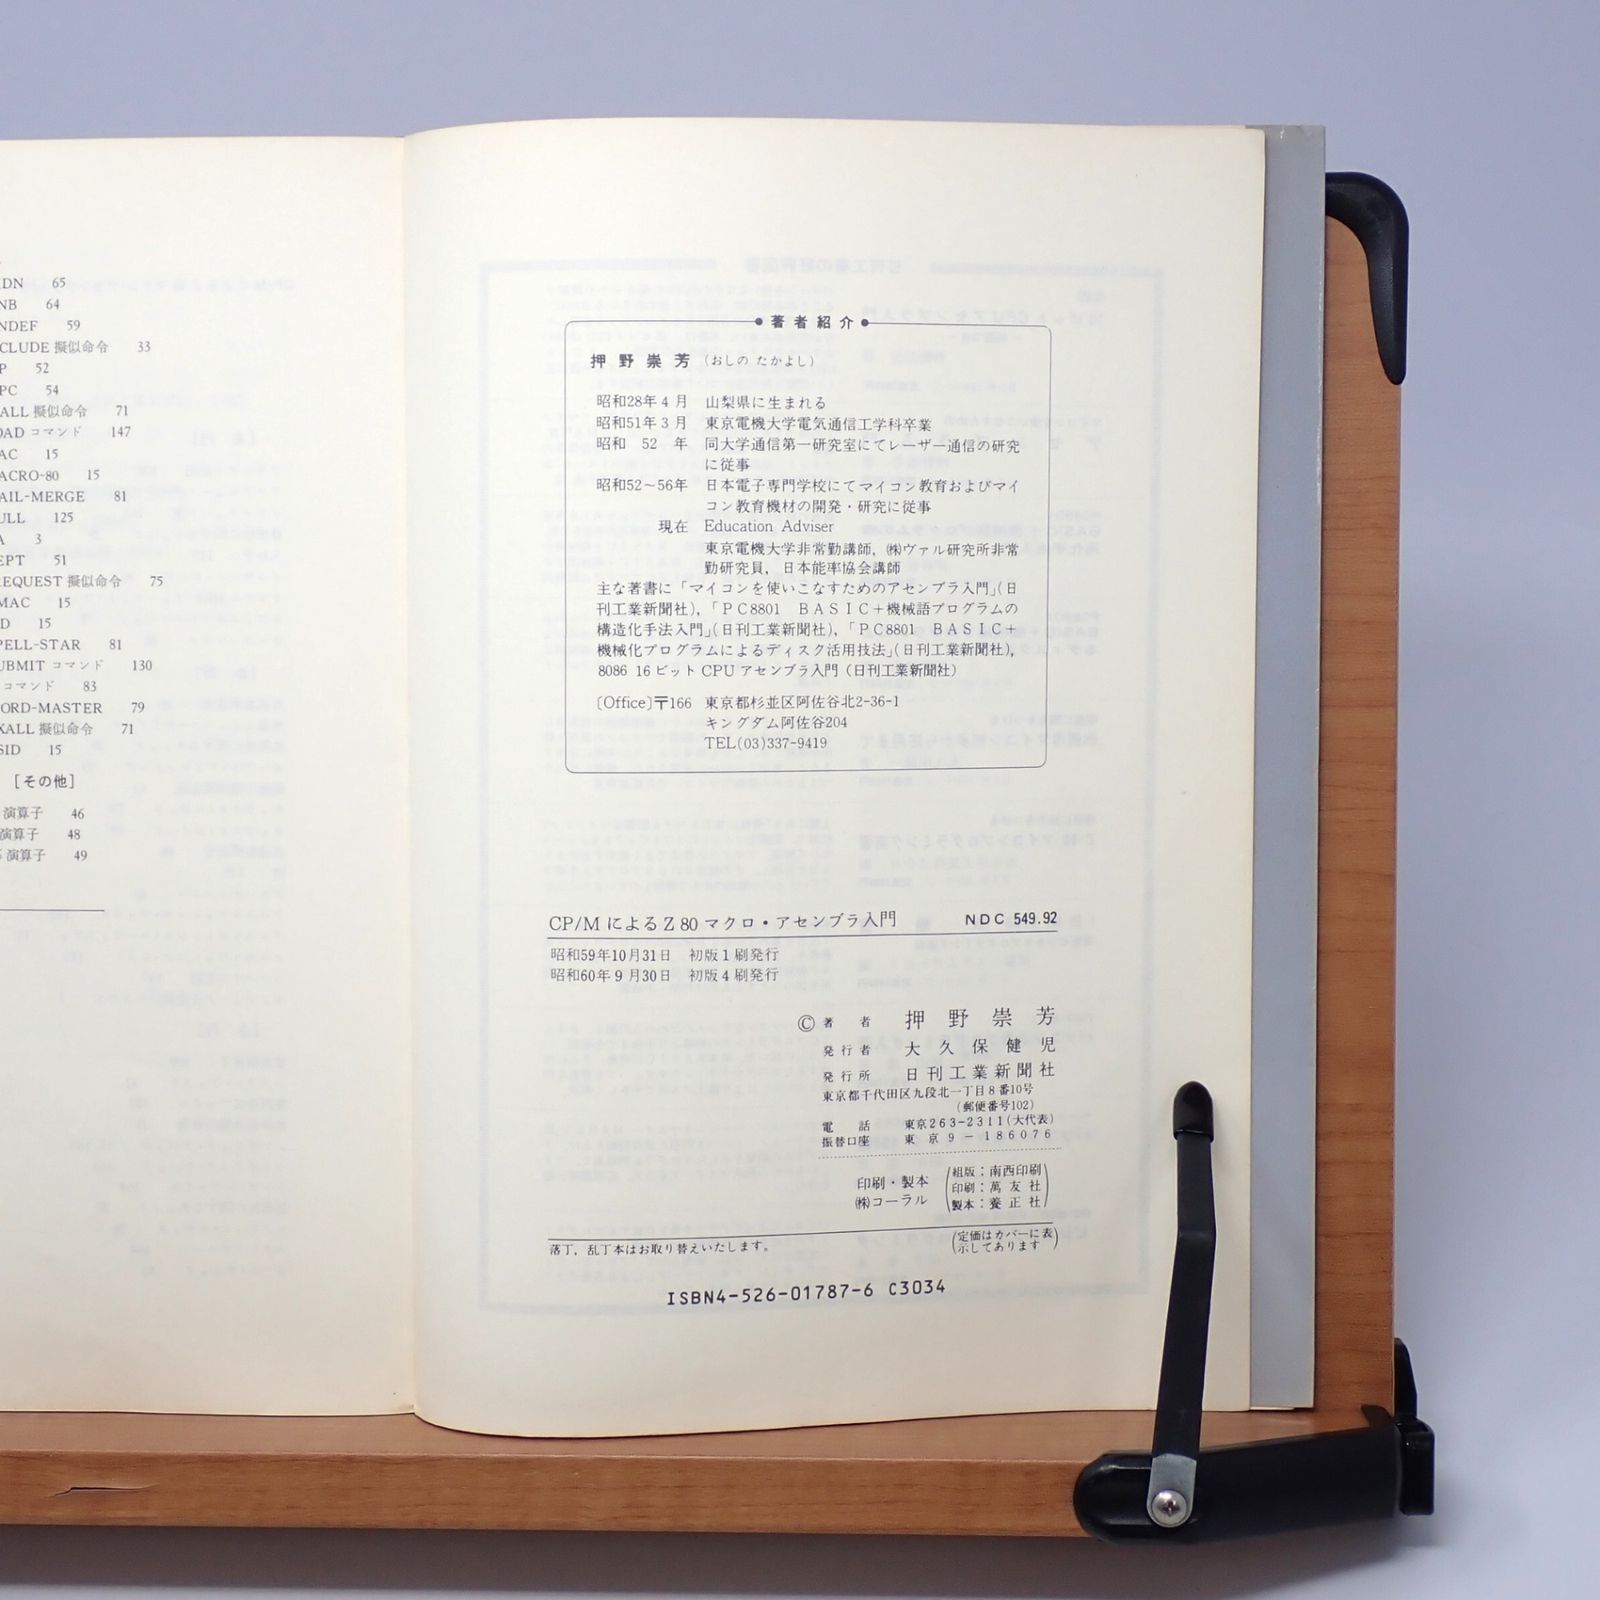 DN 65
NB 64
NDEF 59
CLUDE 擬似命令 33
P 52
PC 54
ALL 擬似命令 71
OAD コマンド 147
AC 15
ACRO-80 15
AIL-MERGE 81
ULL 125
A 3
EPT 51
REQUEST 擬似命令 75
MAC 15
D 15
PELL-STAR 81
UBMIT コマンド 130
コマンド 83
ORD-MASTER 79
XALL 擬似命令 71
SID 15
[その他]
演算子 46
演算子 48
演算子 49
著者紹介
押野崇芳 (おしの たかよし)
昭和28年4月 山梨県に生まれる
昭和51年3月 東京電機大学電気通信工学科卒業
昭和 52 年 同大学通信第一研究室にてレーザー通信の研究
に従事
昭和52〜56年 日本電子専門学校にてマイコン教育およびマイ
コン教育機材の開発・研究に従事
現在 Education Adviser
東京電機大学非常勤講師, ㈱ヴァル研究所非常
勤研究員, 日本能率協会講師
主な著書に「マイコンを使いこなすためのアセンブラ入門」(日
刊工業新聞社), 「PC8801 BASIC+機械語プログラムの
構造化手法入門」(日刊工業新聞社), 「PC8801 BASIC+
機械化プログラムによるディスク活用技法」(日刊工業新聞社),
8086 16ビットCPUアセンブラ入門 (日刊工業新聞社)
[Office]〒166 東京都杉並区阿佐谷北2-36-1
キングダム阿佐谷204
TEL(03)337-9419
CP/MによるZ80マクロ・アセンブラ入門 NDC 549.92
昭和59年10月31日 初版1刷発行
昭和60年9月30日 初版4刷発行
© 著者 押野崇芳
発行者 大久保健児
発行所 日刊工業新聞社
東京都千代田区九段北一丁目8番10号
(郵便番号102)
電話 東京263-2311(大代表)
振替口座 東京9-186076
印刷・製本
㈱コーラル
(組版:南西印刷
印刷:萬友社
製本:養正社)
落丁, 乱丁本はお取り替えいたします。
(定価はカバーに表
示してあります)
ISBN4-526-01787-6 C3034